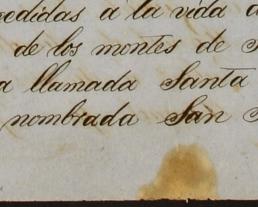 edidas a la vida
de los montes de
llamada Santa
nombrada San